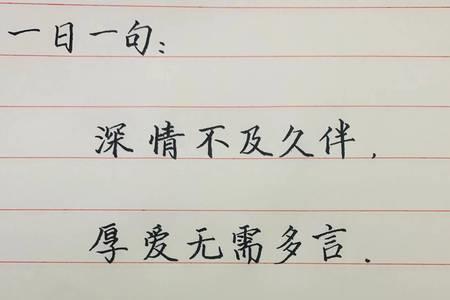 一日一句：
深情不及久伴，
厚爱无需多言．